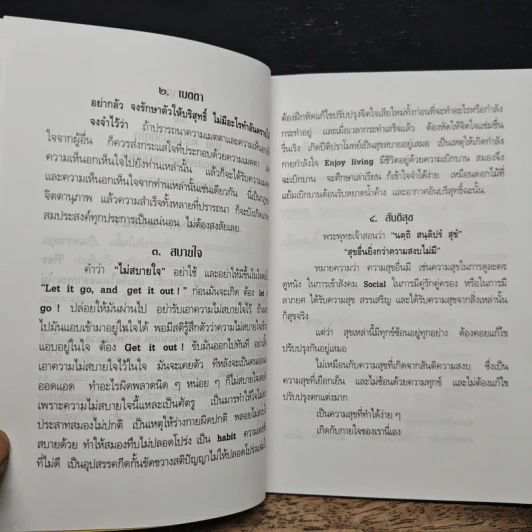 ๒. เมตตา
อย่ากลัว จงรักษาตัวให้บริสุทธิ์ ไม่มีอะไรทำอันตรายได้
จงจำไว้ว่า ถ้าปรารถนาความเมตตาและความเห็นอก
ใจจากผู้อื่น ก็ควรส่งกระแสใจที่ประกอบด้วยความเมตตา และ
ความเห็นอกเห็นใจไปยังท่านเหล่านั้น แล้วก็จะได้รับความเมตตา
และความเห็นอกเห็นใจจากท่านเหล่านั้นเช่นเดียวกัน นี่เป็นกฎของ
จิตตานุภาพ แล้วความสำเร็จทั้งหลายที่ปรารถนา ก็จะบังเกิด
สมประสงค์ทุกประการเป็นแน่นอน ไม่ต้องสงสัยเลย.
๓. สบายใจ
คำว่า "ไม่สบายใจ" อย่าใช้ และอย่าให้มีขึ้นในใจต่อไป
"Let it go, and get it out!" ก่อนมันจะเกิด ต้อง let it
go ! ปล่อยให้มันผ่านไป อย่ารับเอาความไม่สบายใจไว้ ถ้าเผลอ
ไปมันแอบเข้ามาอยู่ในใจได้ พอมีสติรู้สึกตัวว่าความไม่สบายใจ
แอบอยู่ในใจ ต้อง Get it out ! ขับมันออกไปทันที อย่า
เอาความไม่สบายใจไว้ในใจ มันจะเคยตัว ทีหลังจะเป็นคนอ่อนแอ
ออดแอด ทำอะไรผิดพลาดนิด ๆ หน่อย ๆ ก็ไม่สบายใจ
เพราะความไม่สบายใจนี้แหละเป็นศัตรู เป็นมารทำให้ใจไม่สงบ
ประสาทสมองไม่ปกติ เป็นเหตุให้ร่างกายผิดปกติ พลอยไม่
สบายด้วย ทำให้สมองทึบไม่ปลอดโปร่ง เป็น habit ความเคยชิน
ที่ไม่ดี เป็นอุปสรรคกีดกั้นขัดขวางสติปัญญาไม่ให้ปลอดโปร่งแจ่มใส
ต้องฝึกหัดแก้ไขปรับปรุงจิตใจเสียใหม่ทั้งก่อนที่จะทำอะไรหรือกำลัง
กระทำอยู่ และเมื่อเวลากระทำเสร็จแล้ว ต้องหัดให้จิตใจแช่มชื่น
รื่นเริง เกิดปีติปราโมทย์เป็นสุขสบายอยู่เสมอ เป็นเหตุให้เกิดกำลัง
กายกำลังใจ Enjoy living มีชีวิตอยู่ด้วยความเบิกบาน สมองจึง
จะเบิกบาน จะศึกษาเล่าเรียน ก็เข้าใจจำได้ง่าย เหมือนดอกไม้ที่
แย้มเบิกบานต้อนรับหยาดน้ำค้าง และอากาศอันบริสุทธิ์ฉะนั้น.
๔. สันติสุข
พระพุทธเจ้าสอนว่า "นตฺถิ สนฺติปรํ สุขํ"
"สุขอื่นยิ่งกว่าความสงบไม่มี"
หมายความว่า ความสุขอื่นมี เช่นความสุขในการดูละคร
ดูหนัง ในการเข้าสังคม Social ในการมีคู่รักคู่ครอง หรือในการมี
ลาภยศ ได้รับความสุข สรรเสริญ และได้รับความสุขจากสิ่งเหล่านั้น
ก็สุขจริง
แต่ว่า สุขเหล่านี้มีทุกข์ซ้อนอยู่ทุกอย่าง ต้องคอยแก้ไข
ปรับปรุงกันอยู่เสมอ
ไม่เหมือนกับความสุขที่เกิดจากสันติความสงบ ซึ่งเป็น
ความสุขที่เยือกเย็น และไม่ซ้อนด้วยความทุกข์ และไม่ต้องแก้ไข
ปรับปรุงตกแต่งมาก
เป็นความสุขที่ทำได้ง่าย ๆ
เกิดกับกายใจของเรานี่เอง